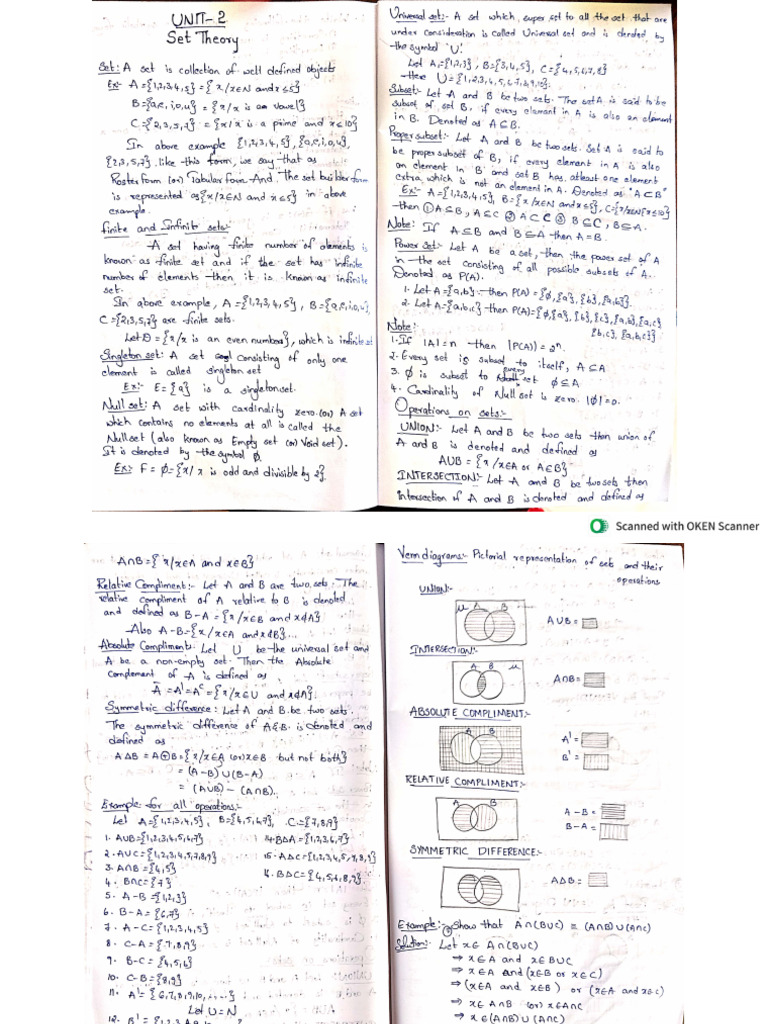 UNIT-2
Set Theory
Set:- A set is collection of well defined objects
Ex:- A={1,2,3,4,5} = {x/x∈N and x≤5}
B={a,e,i,o,u} = {x/x is an vowel}
C={2,3,5,7} = {x/x is a prime and x≤10}
In above example {1,2,3,4,5}, {a,e,i,o,u},
{2,3,5,7} like this form, we say that as
Roster form (or) Tabular form. And The set builder form
is represented as {x/x∈N and x≤5} in above
example.
finite and Infinite sets:-
A set having finite number of elements is
known as finite set and if the set has infinite
number of elements then it is known as infinite
set.
In above example, A={1,2,3,4,5}, B={a,e,i,o,u},
C={2,3,5,7} are finite sets.
Let D={x/x is an even number}, which is infinite set
Singleton set: A set consisting of only one
element is called singleton set
Ex:- E={a} is a singleton set.
Null set: A set with cardinality zero. (or) A set
which contains no elements at all is called the
Null set (also known as Empty set (or) Void set).
It is denoted by the symbol ∅.
Ex:- F = ∅ = {x/x is odd and divisible by 2}
Universal set:- A set which, super set to all the set that are
under consideration is called Universal set and is denoted by
the symbol 'U'.
Let A={1,2,3}, B={3,4,5}, C={4,5,6,7,8}
then U={1,2,3,4,5,6,7,8,9,10}.
Subset:- Let A and B be two sets. The set A is said to be
subset of set B, if every element in A is also an element
in B. Denoted as A⊆B.
Proper subset:- Let A and B be two sets. Set A is said to
be proper subset of B, if every element in A is also
an element in B and set B has, atleast one element
extra, which is not an element in A. Denoted as "A⊂B"
Ex:- A={1,2,3,4,5}, B={x/x∈N and x≤5}, C={x/x∈N x≤10}
then ① A⊆B, A⊆C ② A⊂C ③ B⊆C, B⊆A.
Note: If A⊆B and B⊆A then A=B.
Power set:- Let A be a set, then the power set of A
in the set consisting of all possible subsets of A.
Denoted as P(A).
1. Let A={a,b} then P(A)={∅,{a},{b},{a,b}}.
2. Let A={a,b,c} then P(A)={∅,{a},{b},{c},{a,b},{a,c}
{b,c},{a,b,c}}
Note:
1. If |A|=n then |P(A)|=2ⁿ.
2. Every set is subset to itself, A⊆A
3. ∅ is subset to every set ∅⊆A
4. Cardinality of Null set is zero. |∅|=0.
Operations on sets:-
UNION:- Let A and B be two sets then union of
A and B is denoted and defined as
A∪B = {x/x∈A or A∈B}
INTERSECTION:- Let A and B be two sets then
Intersection of A and B is denoted and defined as
Scanned with OKEN Scanner
A∩B={x/x∈A and x∈B}
Relative Compliment:- Let A and B are two sets. The
relative compliment of A relative to B is denoted
and defined as B-A={x/x∈B and x∉A}
Also A-B={x/x∈A and x∉B}
Absolute Compliment:- Let U be the universal set and
A be a non-empty set. Then the Absolute
complement of A is defined as
Ā=A'=Aᶜ={x/x∈U and x∉A}.
Symmetric difference: Let A and B be two sets.
The symmetric difference of A&B is denoted and
defined as
A∆B = A⊕B={x/x∈A (or) x∈B but not both}
= (A-B)∪(B-A)
= (A∪B)-(A∩B).
Example for all operations:-
Let A={1,2,3,4,5}, B={4,5,6,7}, C={7,8,9}
1. A∪B={1,2,3,4,5,6,7} 14. B∆A={1,2,3,6,7}
2. A∪C={1,2,3,4,5,7,8,9} 15. A∆C={1,2,3,4,5,7,8,9}
3. A∩B={4,5} 16. B∆C={4,5,6,8,9}
4. B∩C={7}
5. A-B={1,2,3}
6. B-A={6,7}
7. A-C={1,2,3,4,5}
8. C-A={7,8,9}
9. B-C={4,5,6}
10. C-B={8,9}
11. A'={6,7,8,9,10,.....}
Let U=N
12. B'={1,2,3
Venn diagrams:- Pictorial representation of sets and their
operations
UNION:-
μ A B
A∪B=
INTERSECTION:-
A B μ
A∩B=
ABSOLUTE COMPLIMENT:-
A B
A'=
B'=
RELATIVE COMPLIMENT:-
A B
A-B=
B-A=
SYMMETRIC DIFFERENCE:-
A∆B=
Example:- Show that A∩(B∪C) = (A∩B)∪(A∩C)
Solution:- Let x∈ A∩(B∪C)
⇒ x∈A and x∈B∪C
⇒ x∈A and (x∈B or x∈C)
⇒ (x∈A and x∈B) or (x∈A and x∈C)
⇒ x∈ A∩B (or) x∈A∩C
⇒ x∈(A∩B)∪(A∩C)